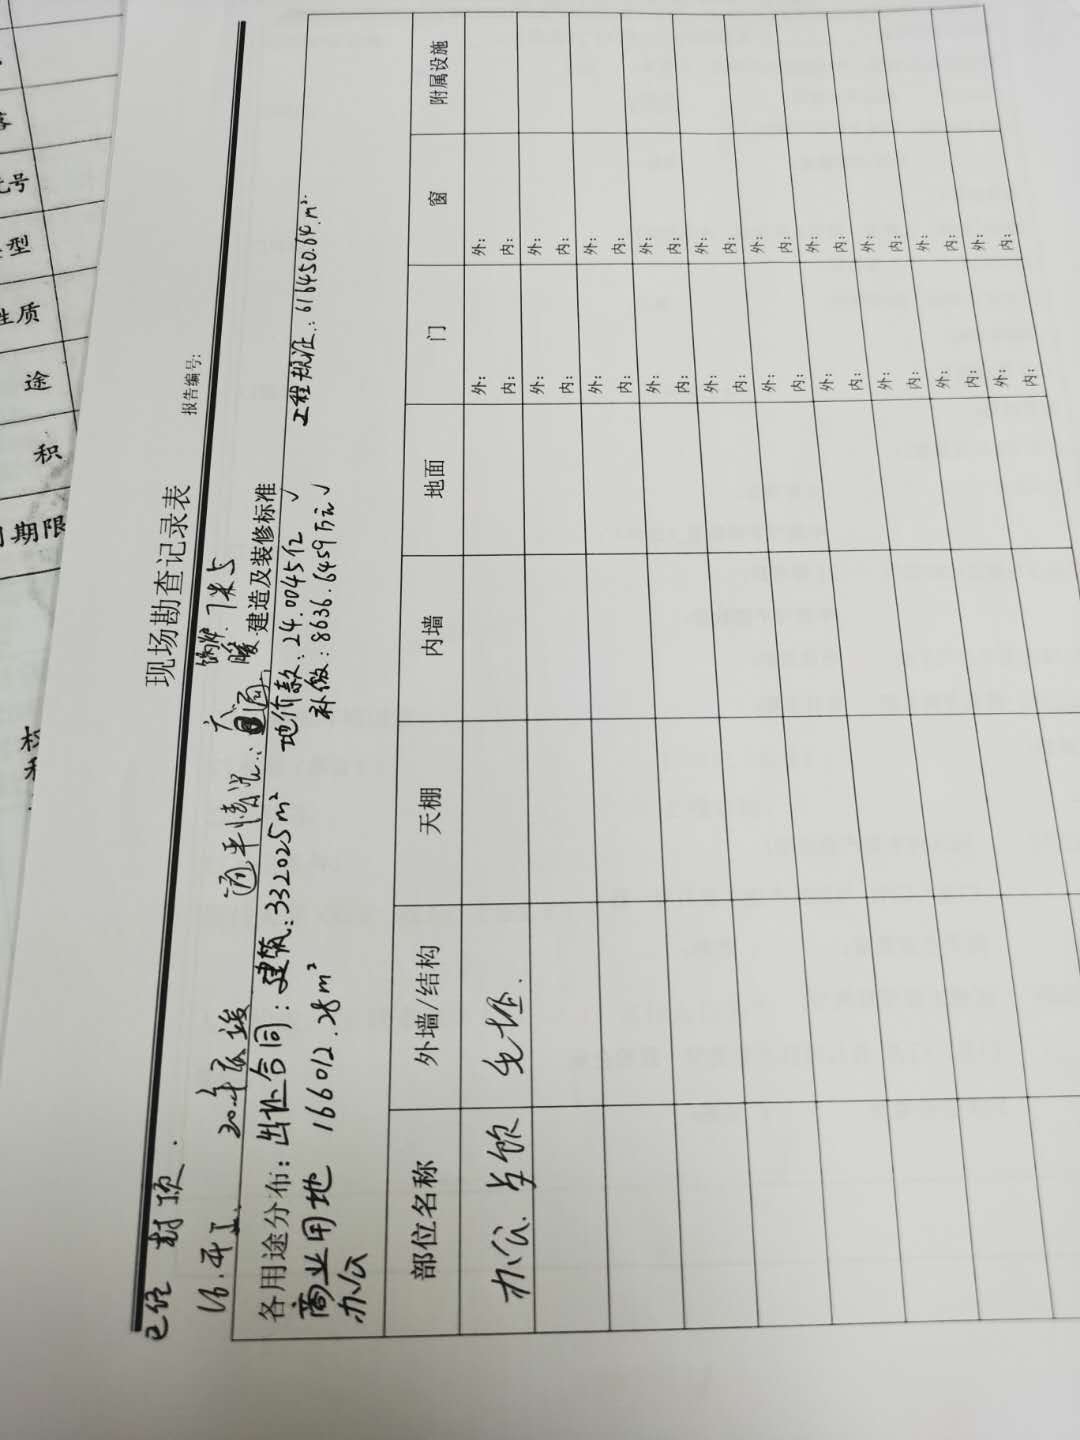 现场勘查记录表
报告编号:
已经封顶.
16.开工. 20年底竣 通平情况:六通, 暖 锅炉 7米5
建造及装修标准
各用途分布:出让合同:建筑:332025m² 地价款:24.0045亿 √ 工程规证:616450.64m²
商业用地 166012.28m² 补缴:8636.6459万元 √
办公
部位名称 外墙/结构 天棚 内墙 地面 门 窗 附属设施
办公. 毛坯. 外: 内: 外: 内:
外: 内: 外: 内:
外: 内: 外: 内:
外: 内: 外: 内:
外: 内: 外: 内:
外: 内: 外: 内:
外: 内: 外: 内:
外: 内: 外: 内:
外: 内: 外: 内:
外: 内: 外: 内:
号
型
性质
途
积
期限
权